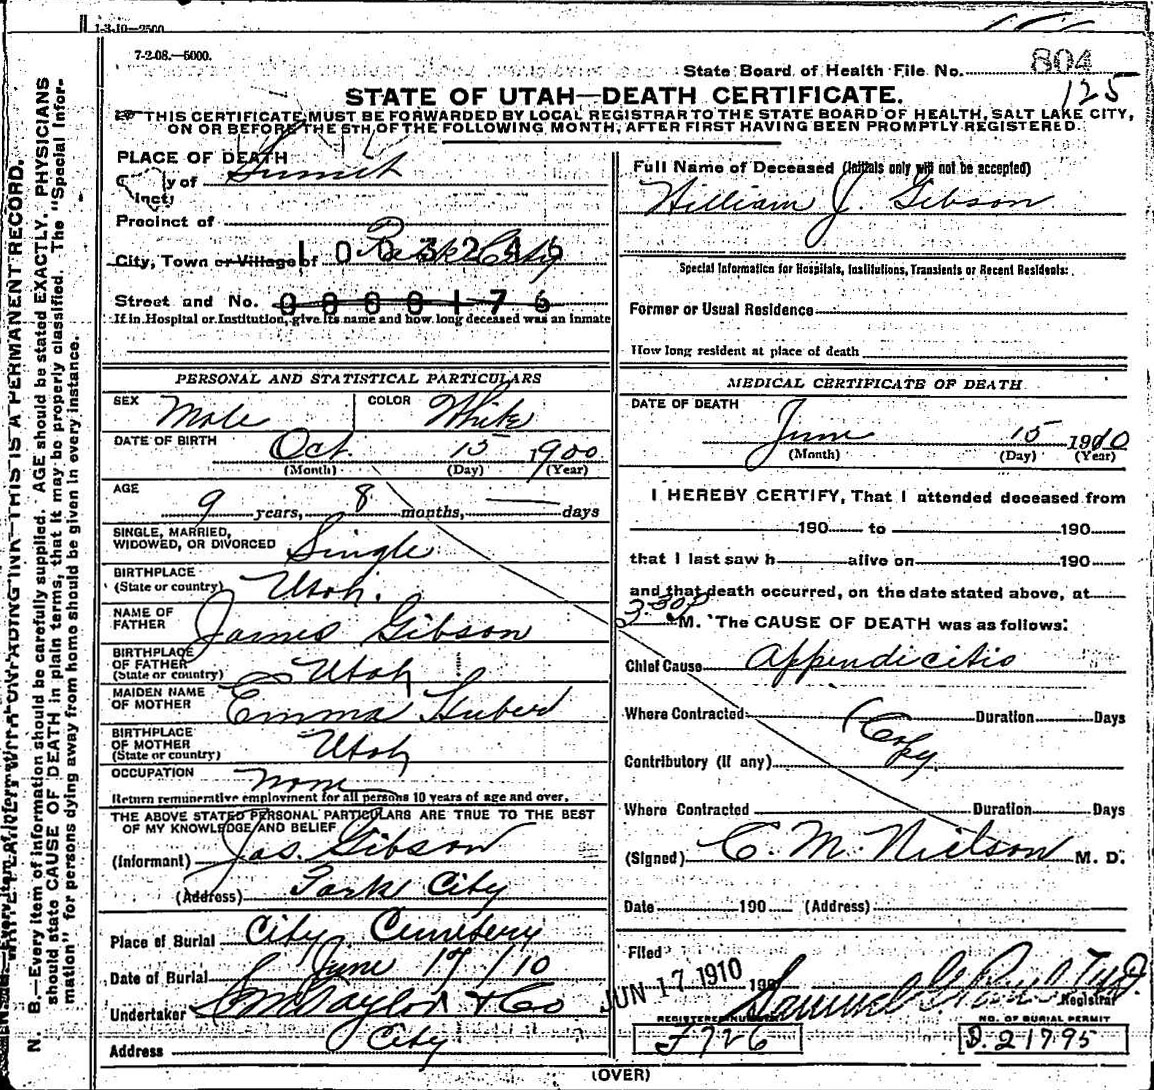 1-3-10-2500
7-2-08.—5000.
State Board of Health File No. 804
125
STATE OF UTAH—DEATH CERTIFICATE.
THIS CERTIFICATE MUST BE FORWARDED BY LOCAL REGISTRAR TO THE STATE BOARD OF HEALTH, SALT LAKE CITY,
ON OR BEFORE THE 5TH OF THE FOLLOWING MONTH, AFTER FIRST HAVING BEEN PROMPTLY REGISTERED.
PLACE OF DEATH
y of Summit
Precinct of
City, Town or Village of Park City
1003246
Street and No. 0000176
If in Hospital or Institution, give its name and how long deceased was an inmate
PERSONAL AND STATISTICAL PARTICULARS
SEX Male COLOR White
DATE OF BIRTH Oct. 15 1900
(Month) (Day) (Year)
AGE
9 years, 8 months, days
SINGLE, MARRIED,
WIDOWED, OR DIVORCED Single
BIRTHPLACE
(State or country) Utah.
NAME OF
FATHER James Gibson
BIRTHPLACE
OF FATHER
(State or country) Utah
MAIDEN NAME
OF MOTHER Emma Huber
BIRTHPLACE
OF MOTHER
(State or country) Utah
OCCUPATION none
Return remunerative employment for all persons 10 years of age and over.
THE ABOVE STATED PERSONAL PARTICULARS ARE TRUE TO THE BEST
OF MY KNOWLEDGE AND BELIEF
(Informant) Jas. Gibson
(Address) Park City
Place of Burial City Cemetery
Date of Burial June 17/10
Undertaker Taylor & Co
Address City
Full Name of Deceased (Initials only will not be accepted)
William J. Gibson
Special Information for Hospitals, Institutions, Transients or Recent Residents:
Former or Usual Residence
How long resident at place of death
MEDICAL CERTIFICATE OF DEATH
DATE OF DEATH
June 15 1910
(Month) (Day) (Year)
I HEREBY CERTIFY, That I attended deceased from
190 to 190
that I last saw h alive on 190
and that death occurred, on the date stated above, at
3-30P M. The CAUSE OF DEATH was as follows:
Chief Cause Appendicitis
Where Contracted Duration Days
(Copy
Contributory (if any)
Where Contracted Duration Days
(Signed) C. M. Nielson M. D.
Date 190 (Address)
Filed JUN 17 1910 190
Samuel
Registrar
REGISTERED NUMBER
F726
NO. OF BURIAL PERMIT
D. 21795
(OVER)
N. B.—Every item of information should be carefully supplied. AGE should be stated EXACTLY. PHYSICIANS
should state CAUSE OF DEATH in plain terms, that it may be properly classified. The "Special Infor-
mation" for persons dying away from home should be given in every instance.
WRITE PLAINLY WITH UNFADING INK—THIS IS A PERMANENT RECORD.